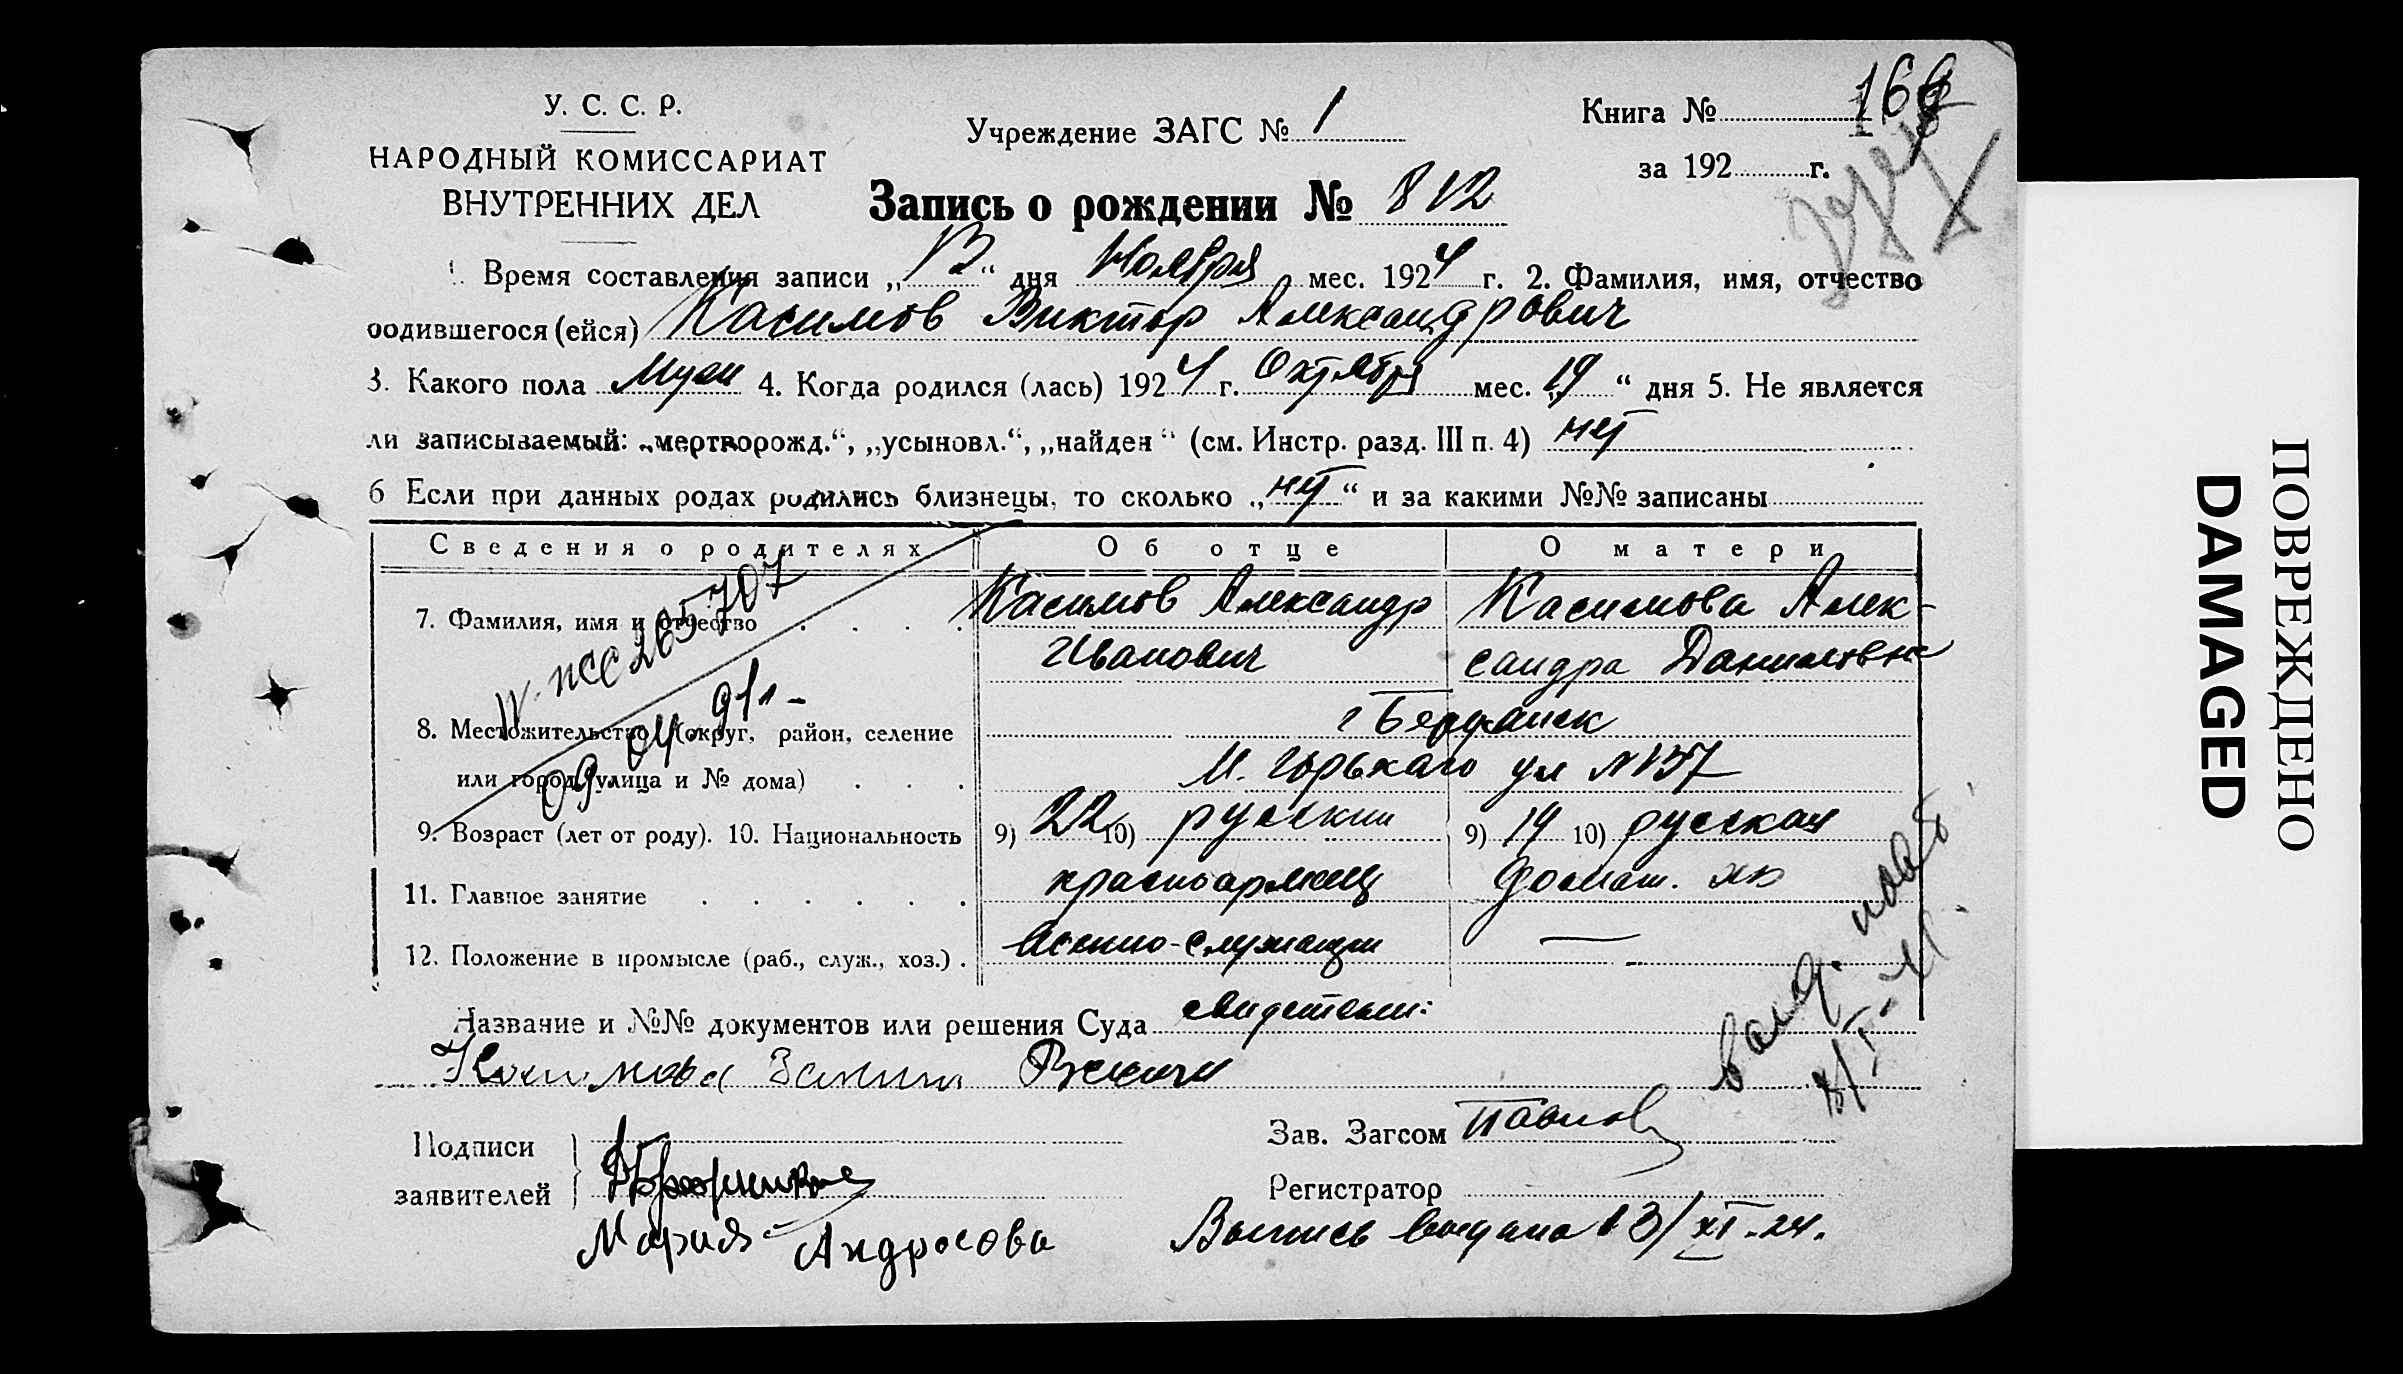 У. С. С. Р.
НАРОДНЫЙ КОМИССАРИАТ
ВНУТРЕННИХ ДЕЛ
Учреждение ЗАГС № 1
Книга №
за 192 г.
Запись о рождении № 812
1. Время составления записи „13“ дня Ноября мес. 1924 г. 2. Фамилия, имя, отчество
родившегося (ейся) Касимов Виктор Александрович
3. Какого пола Муж 4. Когда родился (лась) 1924 г. Октября мес. „19“ дня 5. Не является
ли записываемый: „мертворожд.“, „усыновл.“, „найден“ (см. Инстр. разд. III п. 4) нет
6 Если при данных родах родились близнецы, то сколько „нет“ и за какими №№ записаны
Сведения о родителях Об отце О матери
7. Фамилия, имя и отчество . . . . Касимов Александр Касимова Алек-
Иванович сандра Даниловна
265707
09.04.91г-
8. Местожительство (округ, район, селение г Бердянск
или город, улица и № дома) . . . М. Горькаго ул №137
9. Возраст (лет от роду). 10. Национальность 9) 22 10) русский 9) 19 10) русская
11. Главное занятие . . . . . . красноармеец домаш. хо
12. Положение в промысле (раб., служ., хоз.) . Военно-служащий —
Название и №№ документов или решения Суда свидетели:
Подписи
заявителей
Мария Андросова
Зав. Загсом Павлов
Регистратор
Выпись выдана 13/XI-24.
ПОВРЕЖДЕНО
DAMAGED